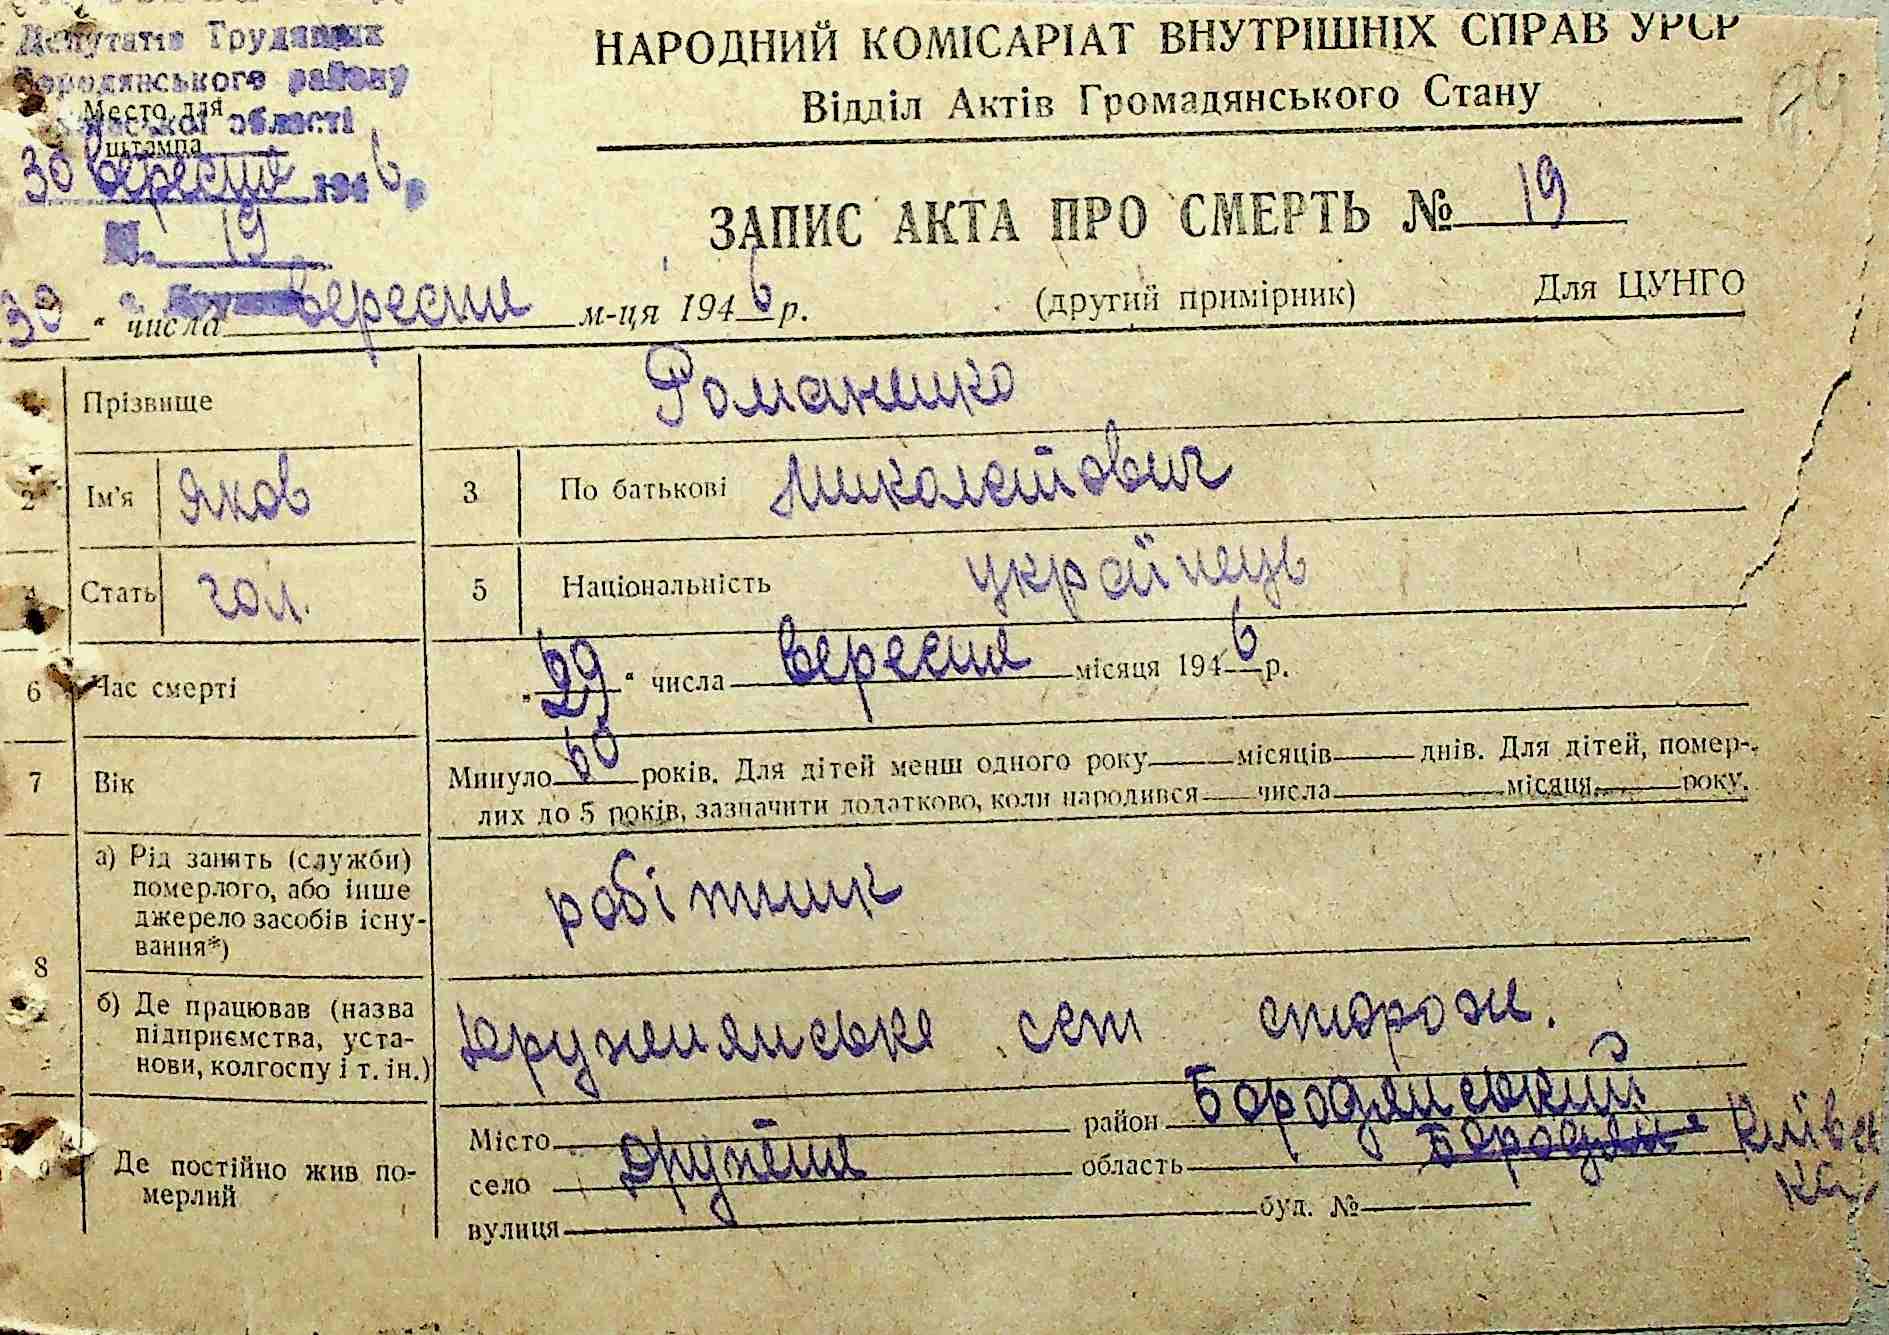 Депутатів Трудящих
Бородянського району
Київської області
Место для
штампа
30 вересня 1946 р
№. 19
НАРОДНИЙ КОМІСАРІАТ ВНУТРІШНІХ СПРАВ УРСР
Відділ Актів Громадянського Стану
ЗАПИС АКТА ПРО СМЕРТЬ № 19
30 " числа вересня м-ця 1946 р.
(другий примірник)
Для ЦУНГО
Прізвище
Романенко
2 Ім'я Яков 3 По батькові
4 Стать чол. 5 Національність українець
6 Час смерті „29" числа вересня місяця 1946 р.
7 Вік Минуло 60 років. Для дітей менш одного року місяців днів. Для дітей, помер-
лих до 5 років, зазначити додатково, коли народився числа місяця року.
8
а) Рід занять (служби)
померлого, або інше
джерело засобів існу-
вання*)
робітник
б) Де працював (назва
підприємства, уста-
нови, колгоспу і т. ін.)
сторож.
9 Де постійно жив по-
мерлий
Місто район Бородянський
село Дружня область Бородян Київсь
ка
вулиця буд. №